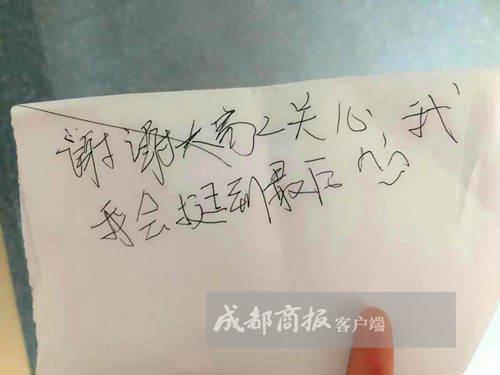 谢谢大家关心,我
我会挺到最后
成都商报 客户端